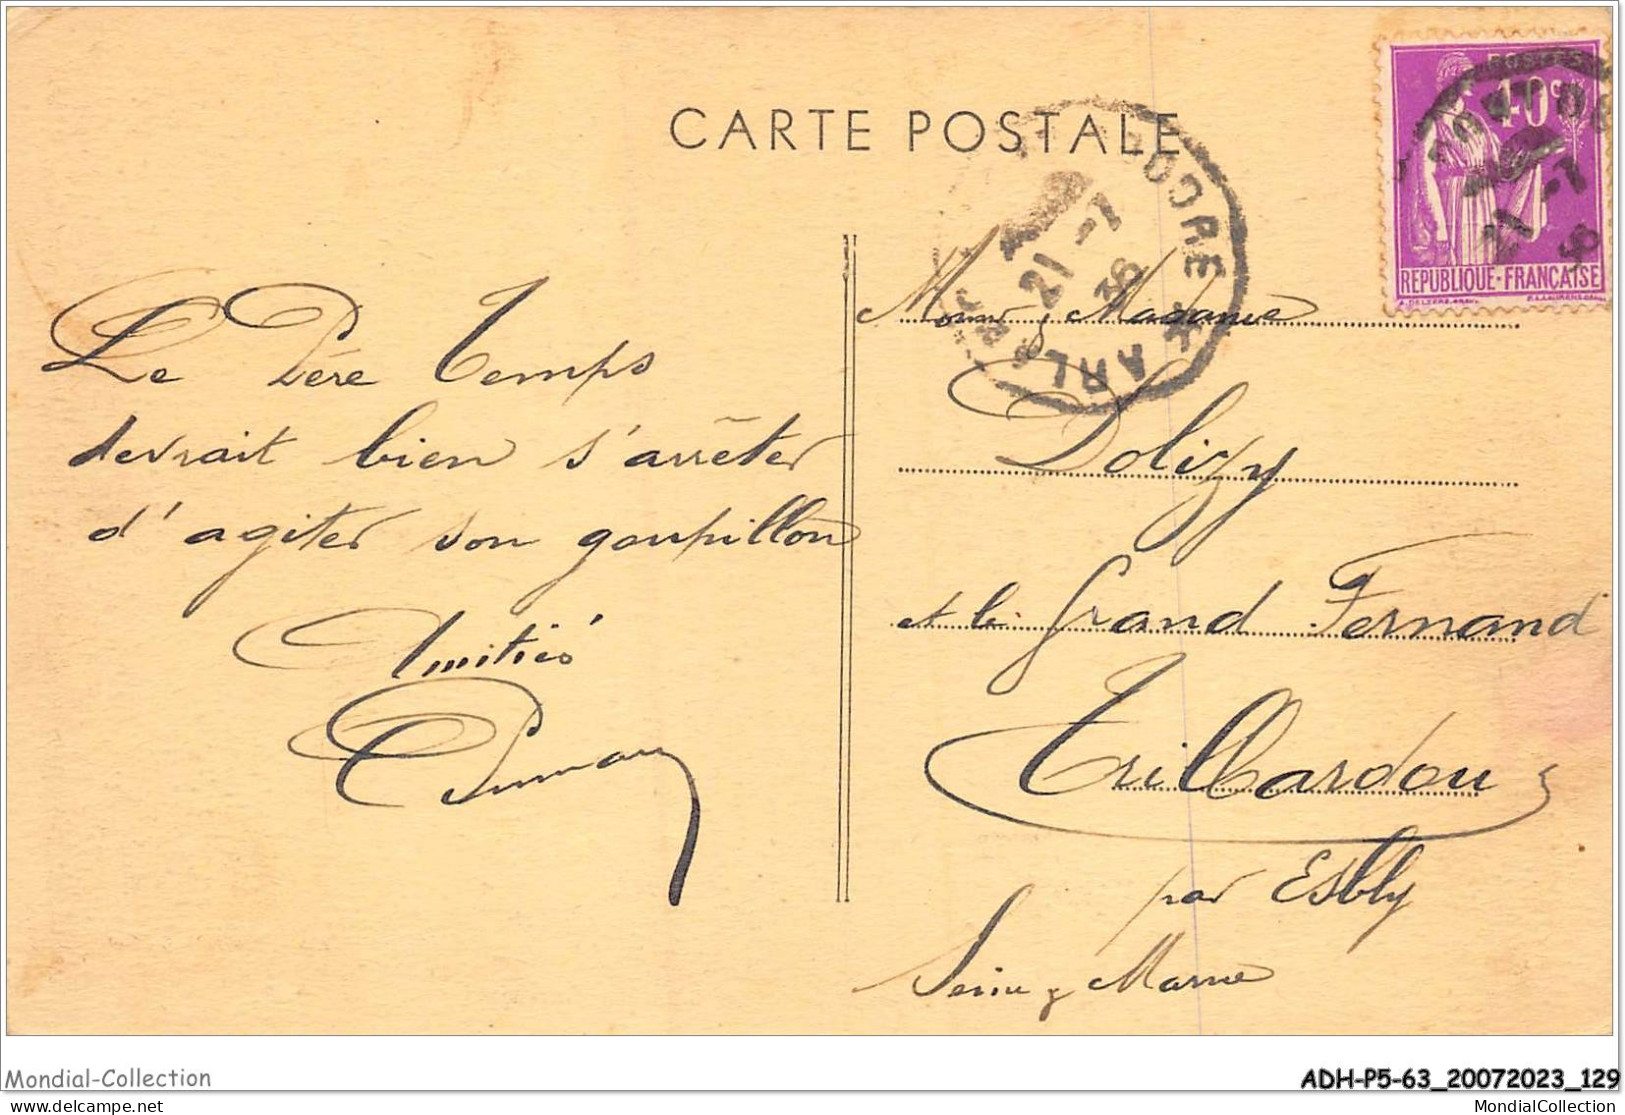 CARTE POSTALE
40c
RÉPUBLIQUE-FRANÇAISE
21 -7
36
Le Père Temps
devrait bien s'arrêter
d'agiter son goupillon
Amitiés
et Madame
Dolizy
et le grand Fernand
Trillardou
par Esbly
Seine & Marne
Mondial-Collection
ADH-P5-63_20072023_129
MondialCollection